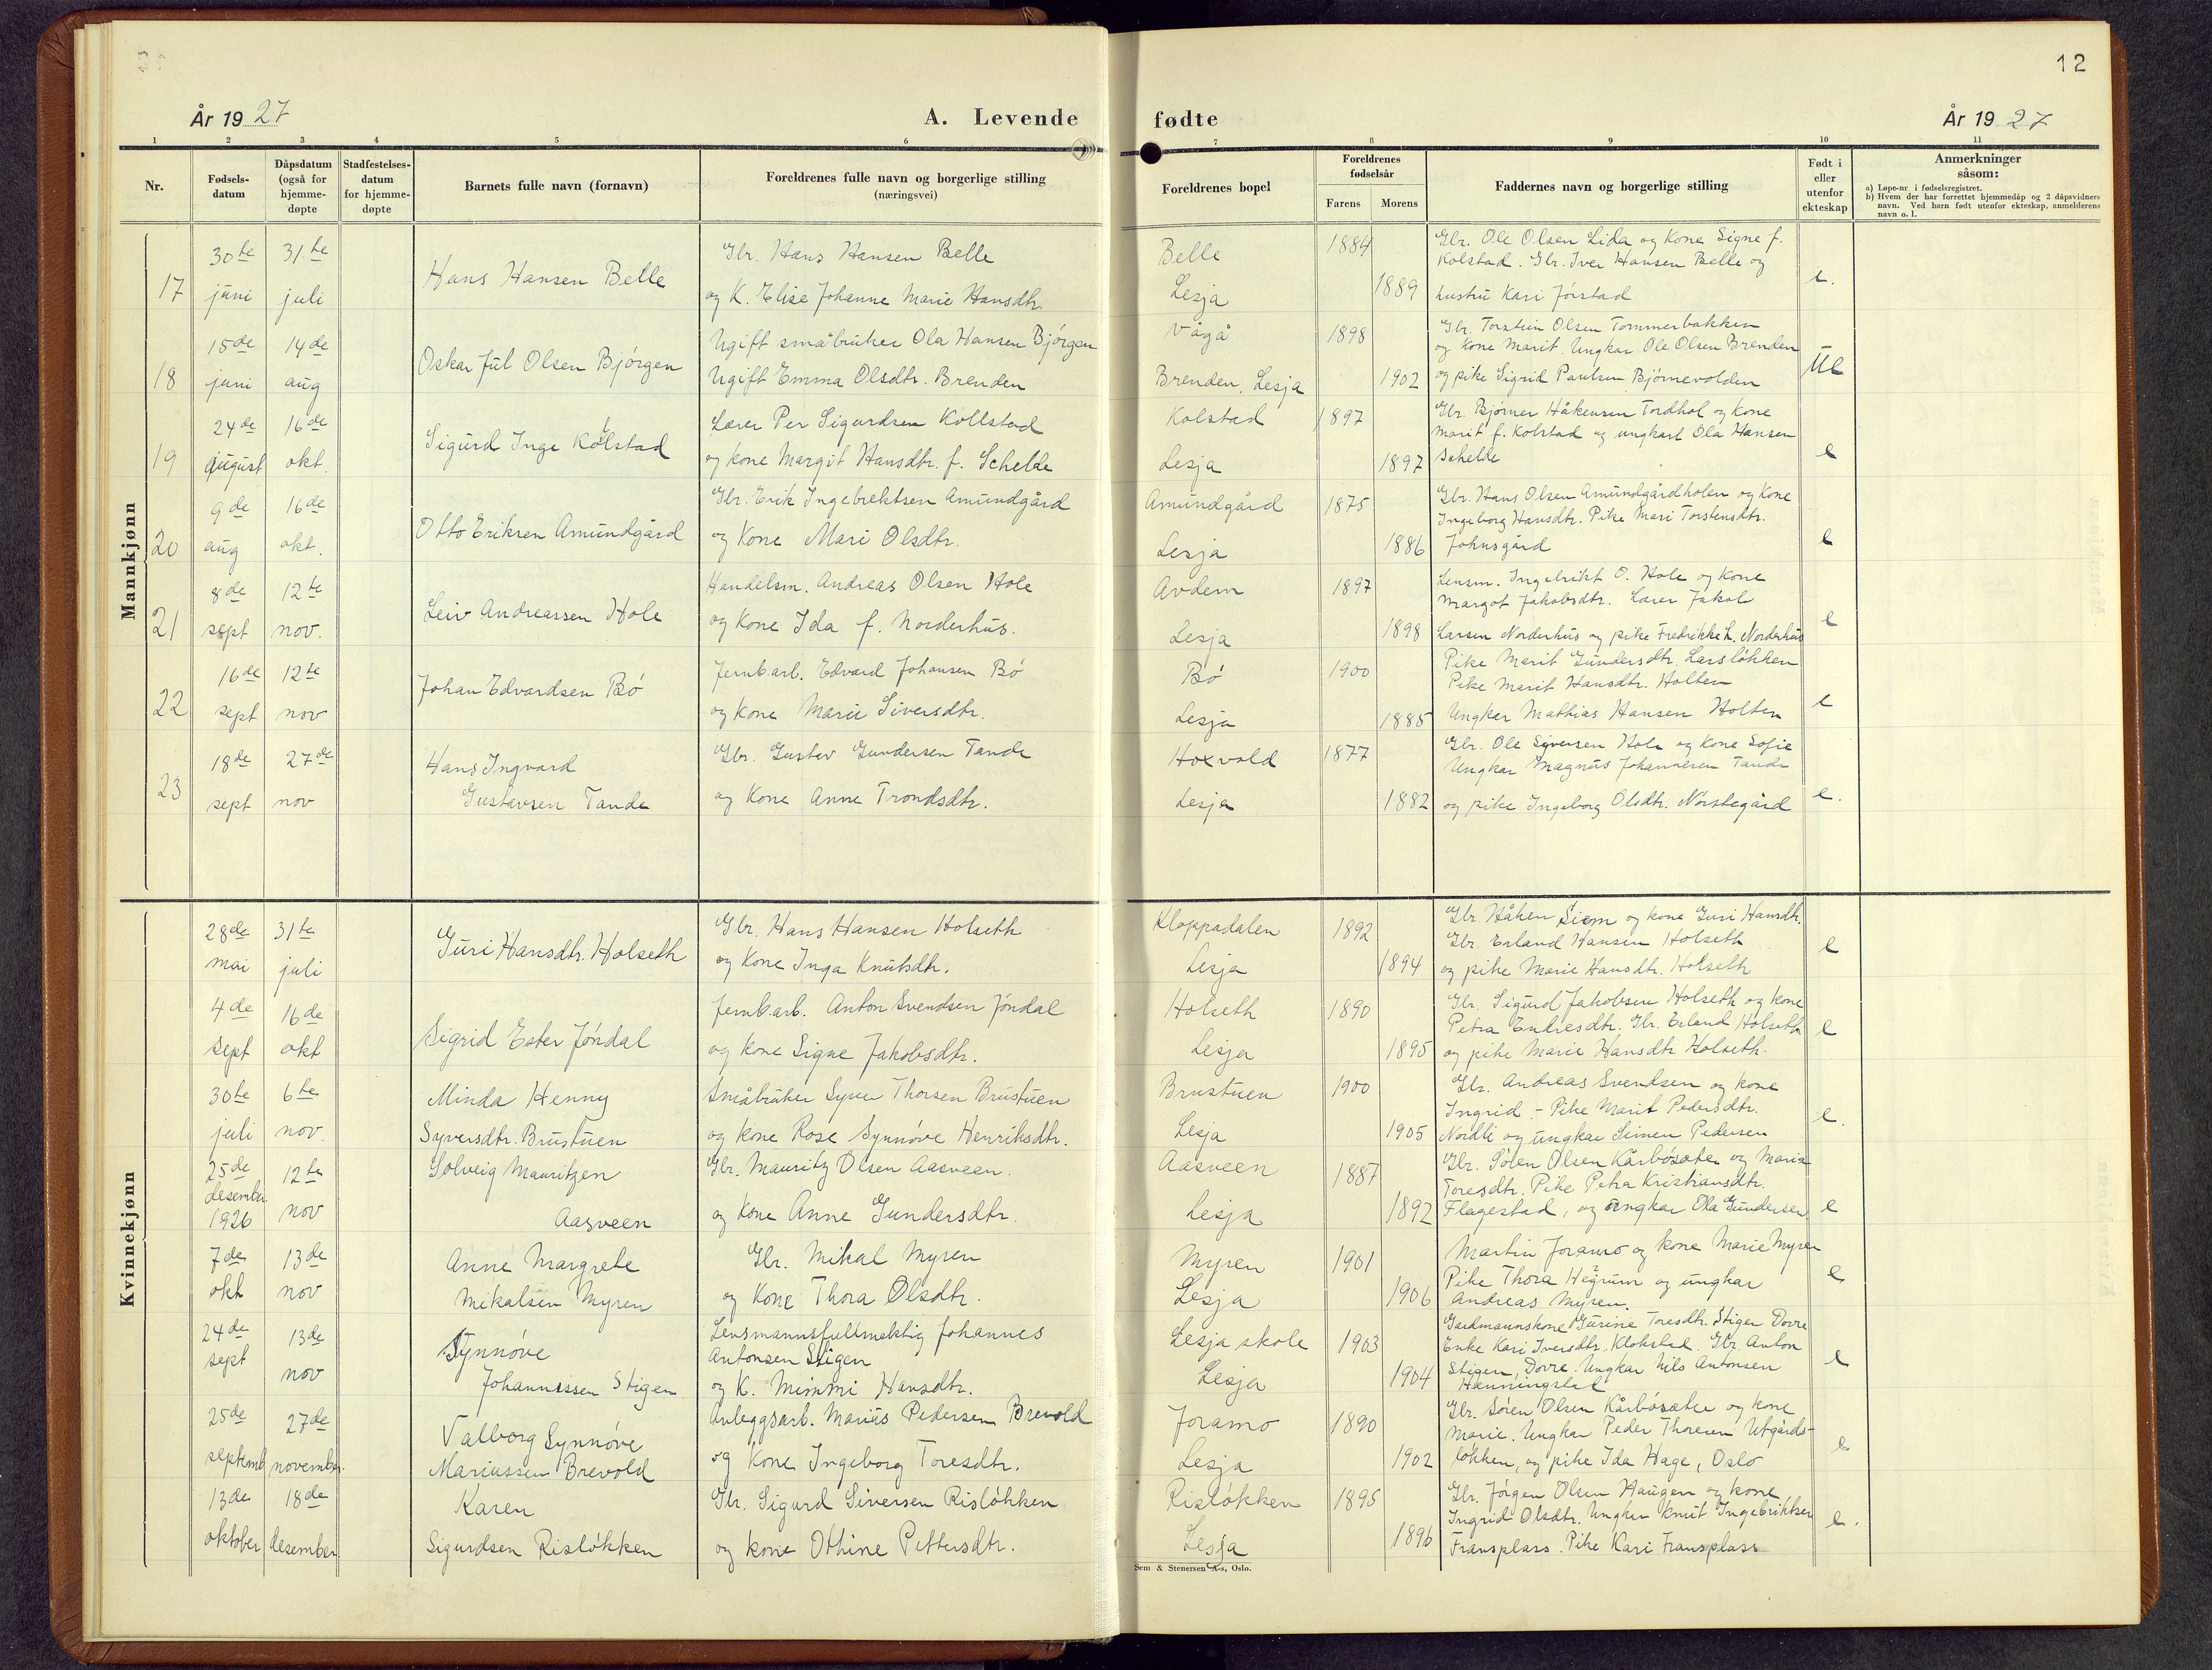 12
År 1927
A. Levende
fødte
År 1927
1 2 3 4 5 6 7 8 9 10 11
Nr.
Fødsels-
datum
Dåpsdatum
(også for
hjemme-
døpte
Stadfestelses-
datum
for hjemme-
døpte
Barnets fulle navn (fornavn)
Foreldrenes fulle navn og borgerlige stilling
(næringsvei)
Foreldrenes bopel
Foreldrenes
fødselsår
Farens
Morens
Faddernes navn og borgerlige stilling
Født i
eller
utenfor
ekteskap
Anmerkninger
såsom:
a) Løpe-nr i fødselsregistret.
b) Hvem der har forrettet hjemmedåp og 2 dåpsvidners
navn. Ved barn født utenfor ekteskap, anmelderens
navn o. l.
Mannkjønn
17
30te juni
31te juli
Hans Hansen Belle
Gbr. Hans Hansen Belle
og K. Elise Johanne Marie Hansdtr.
Belle
Lesja
1884
1889
Gbr. Ole Olsen Lida og Kone Signe f.
Kolstad. Gbr. Iver Hansen Belle og
hustru Kari Jørstad
e.
18
15de juni
14de aug
Oskar Jul Olsen Bjørgen
Ugift småbruker Ola Hansen Bjørgen
Ugift Emma Olsdtr. Brenden
Vågå
Brenden, Lesja
1898
1902
Gbr. Torstein Olsen Tommerbakken
og Kone Marit. Ungkar Ole Olsen Brenden
og pike Sigrid Paulsen Bjørnevolden
Ue
19
24de august
16de okt.
Sigurd Inge Kolstad
Lærer Per Sigurdsen Kollstad
og kone Margit Hansdtr. f. Schelde
Kolstad
Lesja
1897
1897
Gbr. Bjørner Håkensen Tordhol og Kone
Marit f. Kolstad og ungkarl Ola Hansen
Schelde
e
20
9de aug
16de okt.
Otto Eriksen Amundgård
Gbr. Erik Ingebrektsen Amundgård
og Kone Mari Olsdtr.
Amundgård
Lesja
1875
1886
Gbr. Hans Olsen Amundgårdholen og Kone
Ingeborg Hansdtr. Pike Mari Torstensdtr.
Johnsgård
e
21
8de sept
12te nov.
Leiv Andreassen Hole
Handelsm. Andreas Olsen Hole
og Kone Ida f. Norderhus.
Avdem
Lesja
1897
1898
Lensm. Ingebrikt O. Hole og Kone
Margot Jakobsdtr. Lærer Jakob
Larsen Norderhus og pike Fredrikke L. Norderhus
e
22
16de sept
12te nov
Johan Edvardsen Bø
Jernb.arb. Edvard Johansen Bø
og Kone Marie Siversdtr.
Bø
Lesja
1900
1885
Pike Marit Gundersdtr. Larsløkken
Pike Marit Hansdtr. Holten
Ungkar Mathias Hansen Holten
e
23
18de sept
27de nov
Hans Ingvard
Gustavsen Tande
Gbr. Gustav Gundersen Tande
og Kone Anne Trondsdtr.
Hoxvold
Lesja
1877
1882
Gbr. Ole Syversen Hole og Kone Sofie
Ungkar Magnus Johannesen Tande
og pike Ingeborg Olsdtr. Norstegård
e.
Kvinnekjønn
28de mai
31te juli
Guri Hansdtr. Holseth
Gbr. Hans Hansen Holseth
og Kone Inga Knutsdtr.
Kloppadalen
Lesja
1892
1894
Gbr. Håken Siem og kone Guri Hansdtr.
Gbr. Erland Hansen Holseth
og pike Marie Hansdtr. Holseth
e
4de sept
16de okt
Sigrid Ester Jøndal
Jernb.arb. Anton Svendsen Jøndal
og kone Signe Jakobsdtr.
Holseth
Lesja
1890
1895
Gbr. Sigurd Jakobsen Holseth og kone
Petra Endresdtr. Gbr. Erland Holseth
og pike Marie Hansdtr Holseth.
e
30te juli
6te nov.
Minda Henny
Syversdtr. Brustuen
Småbruker Syver Thorsen Brustuen
og kone Rose Synnøve Henriksdtr.
Brustuen
Lesja
1900
1905
Gbr. Andreas Svendsen og kone
Ingrid - Pike Marit Pedersdtr.
Nordli og ungkar Simen Pedersen
e.
25de desember 1926
12te nov
Solveig Mauritzen
Aasveen
Gbr. Mauritz Olsen Aasveen.
og kone Anne Gundersdtr.
Aasveen
Lesja
1887
1892
Gbr. Søren Olsen Kårbøsæter og Marie
Toresdtr. Pike Petra Kristiansdtr.
Flagestad, og ungkar Ola Gundersen
e
7de okt
13de nov
Anne Margrete
Mikalsen Myren
Gbr. Mikal Myren
og Kone Thora Olsdtr.
Myren
Lesja
1901
1906
Martin Joramo og kone Marie Myren
Pike Thora Hegrum og ungkar
Andreas Myren.
e
24de sept
13de nov
Synnøve
Johannessen Stigen
Lensmannsfullmektig Johannes
Antonsen Stigen
og K. Mimmi Hansdtr.
Lesja skole
Lesja
1903
1904
Gardmannskone Gurine Toresdtr. Stigen Dovre
Enke Kari Iversdtr. Klokstad. Gbr. Anton
Stigen, Dovre. Ungkar Nils Antonsen
Hanningstad
e
25de septemb
27de november.
Valborg Synnøve
Mariussen Brevold
Anleggsarb. Marius Pedersen Brevold
og Kone Ingeborg Toresdtr.
Joramo
Lesja
1890
1902
Gbr. Søren Olsen Kårbøsæter og kone
Marie. Ungkar Peder Thoresen Utgårds-
løkken, og pike Ida Hage, Oslo
e
13de oktober
18de desember
Karen
Sigurdsen Risløkken
Gbr. Sigurd Siversen Risløkken
og kone Othine Pettersdtr.
Risløkken
Lesja
1895
1896
Gbr. Jørgen Olsen Haugen og kone
Ingrid Olsdtr. Ungkar Knut Ingebriktsen
Fransplass. Pike Kari Fransplass
e.
Sem & Stenersen A-s, Oslo.